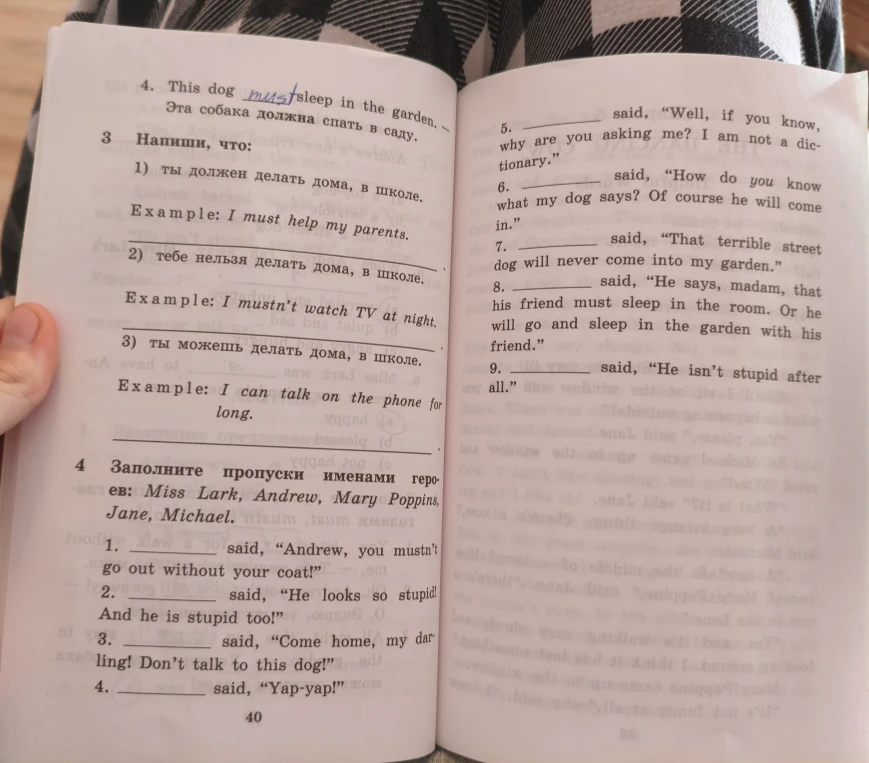 4. This dog must sleep in the garden.
Эта собака должна спать в саду.
3 Напиши, что:
1) ты должен делать дома, в школе.
Example: I must help my parents.
2) тебе нельзя делать дома, в школе.
Example: I mustn't watch TV at night.
3) ты можешь делать дома, в школе.
Example: I can talk on the phone for
long.
4 Заполните пропуски именами геро-
ев: Miss Lark, Andrew, Mary Poppins,
Jane, Michael.
1. __________ said, “Andrew, you mustn't
go out without your coat!”
2. __________ said, “He looks so stupid!
And he is stupid too!”
3. __________ said, “Come home, my dar-
ling! Don't talk to this dog!”
4. __________ said, “Yap-yap!”
40
5. __________ said, “Well, if you know,
why are you asking me? I am not a dic-
tionary.”
6. __________ said, “How do you know
what my dog says? Of course he will come
in.”
7. __________ said, “That terrible street
dog will never come into my garden.”
8. __________ said, “He says, madam, that
his friend must sleep in the room. Or he
will go and sleep in the garden with his
friend.”
9. __________ said, “He isn't stupid after
all.”